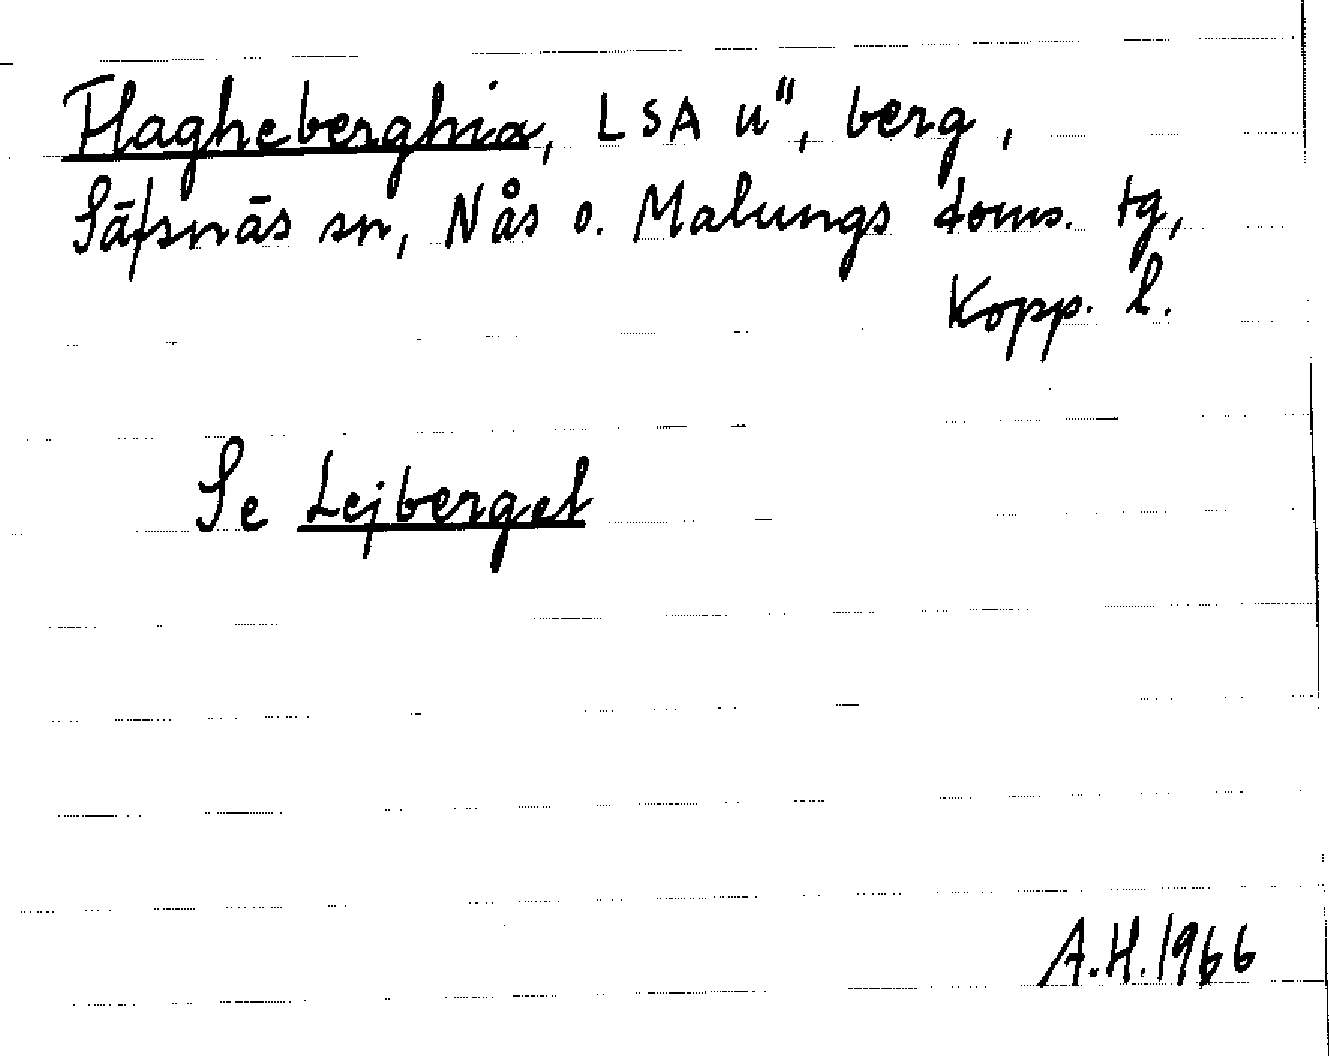 Flagheberghia, LSA u", berg,
Säfsnäs sn, Nås o. Malungs doms. tg,
Kopp. l.
Se Lejberget
A.H.1966